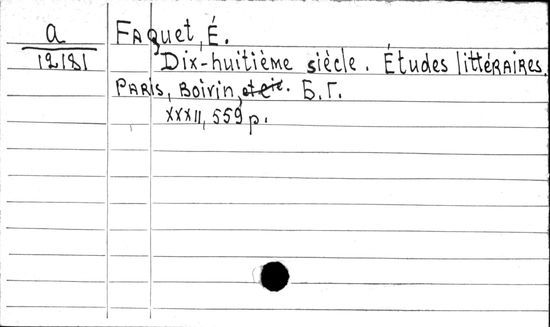 a Faguet, É.
12181 Dix-huitième siècle. Études littéraires.
Paris, Boivin, et Cie. Б.Г.
XXXII, 559 p.